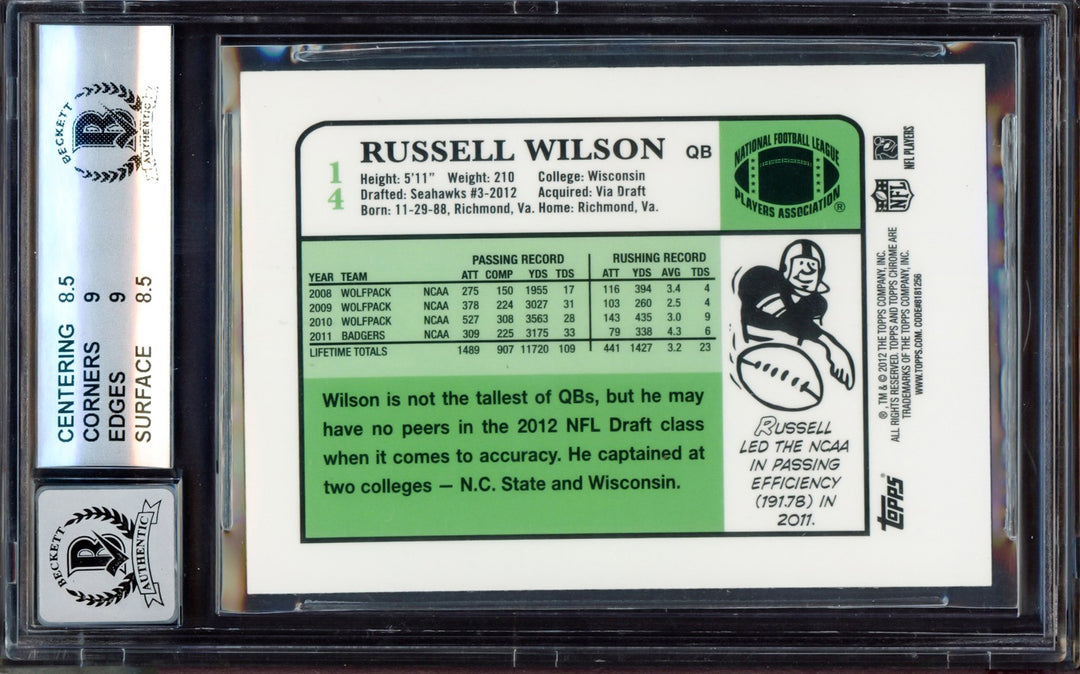 BECKETT
B
AUTHENTIC
CENTERING 8.5
CORNERS 9
EDGES 9
SURFACE 8.5
BECKETT
B
AUTHENTIC
14
RUSSELL WILSON QB
Height: 5'11" Weight: 210 College: Wisconsin
Drafted: Seahawks #3-2012 Acquired: Via Draft
Born: 11-29-88, Richmond, Va. Home: Richmond, Va.
NATIONAL FOOTBALL LEAGUE
PLAYERS ASSOCIATION®
PASSING RECORD RUSHING RECORD
YEAR TEAM ATT COMP YDS TDS ATT YDS AVG TDS
2008 WOLFPACK NCAA 275 150 1955 17 116 394 3.4 4
2009 WOLFPACK NCAA 378 224 3027 31 103 260 2.5 4
2010 WOLFPACK NCAA 527 308 3563 28 143 435 3.0 9
2011 BADGERS NCAA 309 225 3175 33 79 338 4.3 6
LIFETIME TOTALS 1489 907 11720 109 441 1427 3.2 23
Wilson is not the tallest of QBs, but he may
have no peers in the 2012 NFL Draft class
when it comes to accuracy. He captained at
two colleges — N.C. State and Wisconsin.
RUSSELL
LED THE NCAA
IN PASSING
EFFICIENCY
(191.78) IN
2011.
NFL PLAYERS
NFL
®, TM & © 2012 THE TOPPS COMPANY, INC.
ALL RIGHTS RESERVED. TOPPS AND TOPPS CHROME ARE
TRADEMARKS OF THE TOPPS COMPANY, INC.
WWW.TOPPS.COM. CODE#8181256
TOPPS